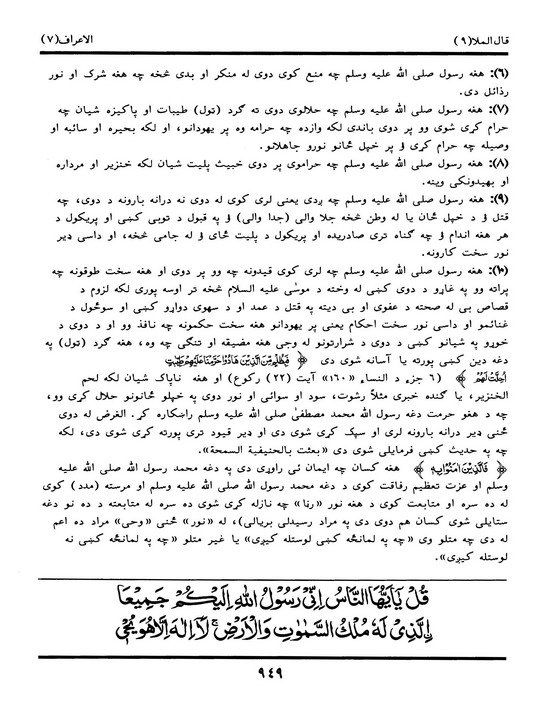 قال الملا(٩)
الاعراف(٧)
(٦): هغه رسول صلی الله علیه وسلم چه منع کوی دوی له منکر او بدی څخه چه هغه شرک او نور
رذائل دی.
(٧): هغه رسول صلی الله علیه وسلم چه حلالوی دوی ته ګرد (ټول) طیبات او پاکیزه شیان چه
حرام کړی شوی وو پر دوی باندی لکه وازده چه حرامه وه پر یهودانو، او لکه بحیره او سائبه او
وصیله چه حرام کړی ؤ پر خپل ځانو نورو جاهلانو.
(٨): هغه رسول صلی الله علیه وسلم چه حراموی پر دوی خبیث پلیت شیان لکه خنزیر او مرداره
او بهیدونکی وینه.
(٩): هغه رسول صلی الله علیه وسلم چه ږدی یعنی لری کوی له دوی نه درانه بارونه د دوی، چه
قتل ؤ د خپل ځان یا له وطن څخه جلا والی (جدا والی) ؤ په قبول د توبی کښی او پریکول د
هر هغه اندام ؤ چه ګناه تری صادریده او پریکول د پلیت ځای ؤ له جامی څخه، او داسی ډیر
نور سخت کارونه.
(١٠): هغه رسول صلی الله علیه وسلم چه لری کوی قیدونه چه وو پر دوی او هغه سخت طوقونه چه
پراته وو په غاړو د دوی کښی له وخته د موسٰی علیه السلام څخه تر اوسه پوری لکه لزوم د
قصاص بی له صحته د عفوی او بی دیته په قتل د عمد او د سهوی دواړو کښی او سوځول د
غنائمو او داسی نور سخت احکام یعنی پر یهودانو هغه سخت حکمونه چه نافذ وو او د دوی د
خوړو په شیانو کښی د دوی د شرارتونو له وجی هغه مضیقه او تنګی چه وه، هغه ګرد (ټول) په
دغه دین کښی پورته یا آسانه شوی دی ﴿ فَبِظُلْمٍ مِّنَ الَّذِيْنَ هَادُوْا حَرَّمْنَا عَلَيْهِمْ طَيِّبٰتٍ
اُحِلَّتْ لَهُمْ ﴾ (٦ جزء د النساء «١٦٠» آیت (٢٢) رکوع) او هغه ناپاک شیان لکه لحم
الخنزیر، یا ګنده خبری مثلاً رشوت، سود او سوائی او نور دوی په خپلو ځانونو حلال کړی وو،
چه د هغو حرمت دغه رسول الله محمد مصطفیٰ صلی الله علیه وسلم راښکاره کړ. الغرض له دوی
ځنی ډیر درانه بارونه لری او سپک کړی شوی دی او ډیر قیود تری پورته کړی شوی دی، لکه
چه په حدیث کښی فرمایلی شوی دی «بعثت بالحنیفیة السمحة».
﴿ فَالَّذِيْنَ اٰمَنُوْا بِهٖ ﴾ هغه کسان چه ایمان ئی راوړی دی په دغه محمد رسول الله صلی الله علیه
وسلم او عزت تعظیم رفاقت کوی د دغه محمد رسول الله صلی الله علیه وسلم او مرسته (مدد) کوی
له ده سره او متابعت کوی د هغه نور «رڼا» چه نازله کړی شوی ده سره له متابعته د ده نو دغه
ستایلی شوی کسان هم دوی دی په مراد رسیدلی بریالی)، له «نور» ځنی «وحی» مراد ده اعم
له دی چه متلو وی «چه په لمانځه کښی لوستله کیږی» یا غیر متلو «چه په لمانځه کښی نه
لوستله کیږی».
قُلْ يٰٓاَيُّهَا النَّاسُ اِنِّىْ رَسُوْلُ اللّٰهِ اِلَيْكُمْ جَمِيْعَا
اِلَّذِىْ لَهٗ مُلْكُ السَّمٰوٰتِ وَالْاَرْضِ ۚ لَآ اِلٰهَ اِلَّا هُوَ يُحْىٖ
٩٤٩